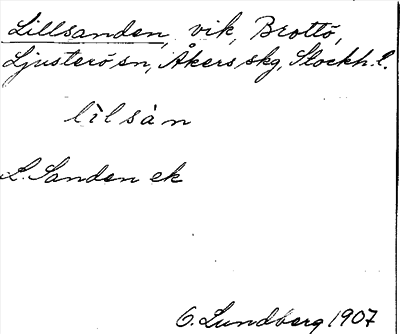 Lillsanden, vik, Brottö,
Ljusterö sn, Åkers skg, Stockh. l.
lìlsàn
L. Sanden ek
O. Lundberg 1907